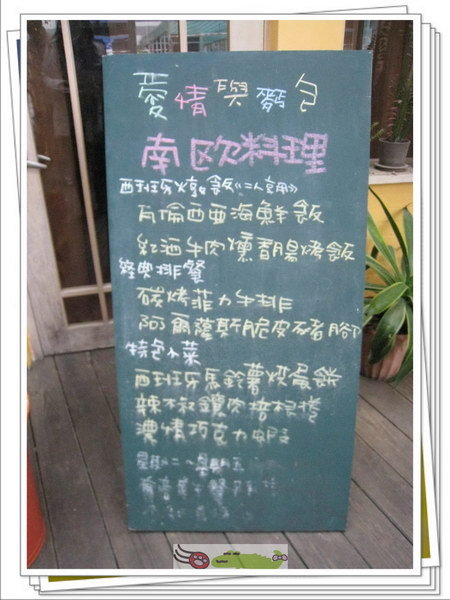 愛情與麵包
南欧料理
西班牙燉飯《二人套用》
瓦倫西亞海鮮飯
紅酒牛肉燻香腸烤飯
經典排餐
碳烤菲力牛排
阿爾薩斯脆皮豬腳
特色小菜
西班牙馬鈴薯烘蛋餅
辣椒鑲肉培根捲
濃情巧克力蝦